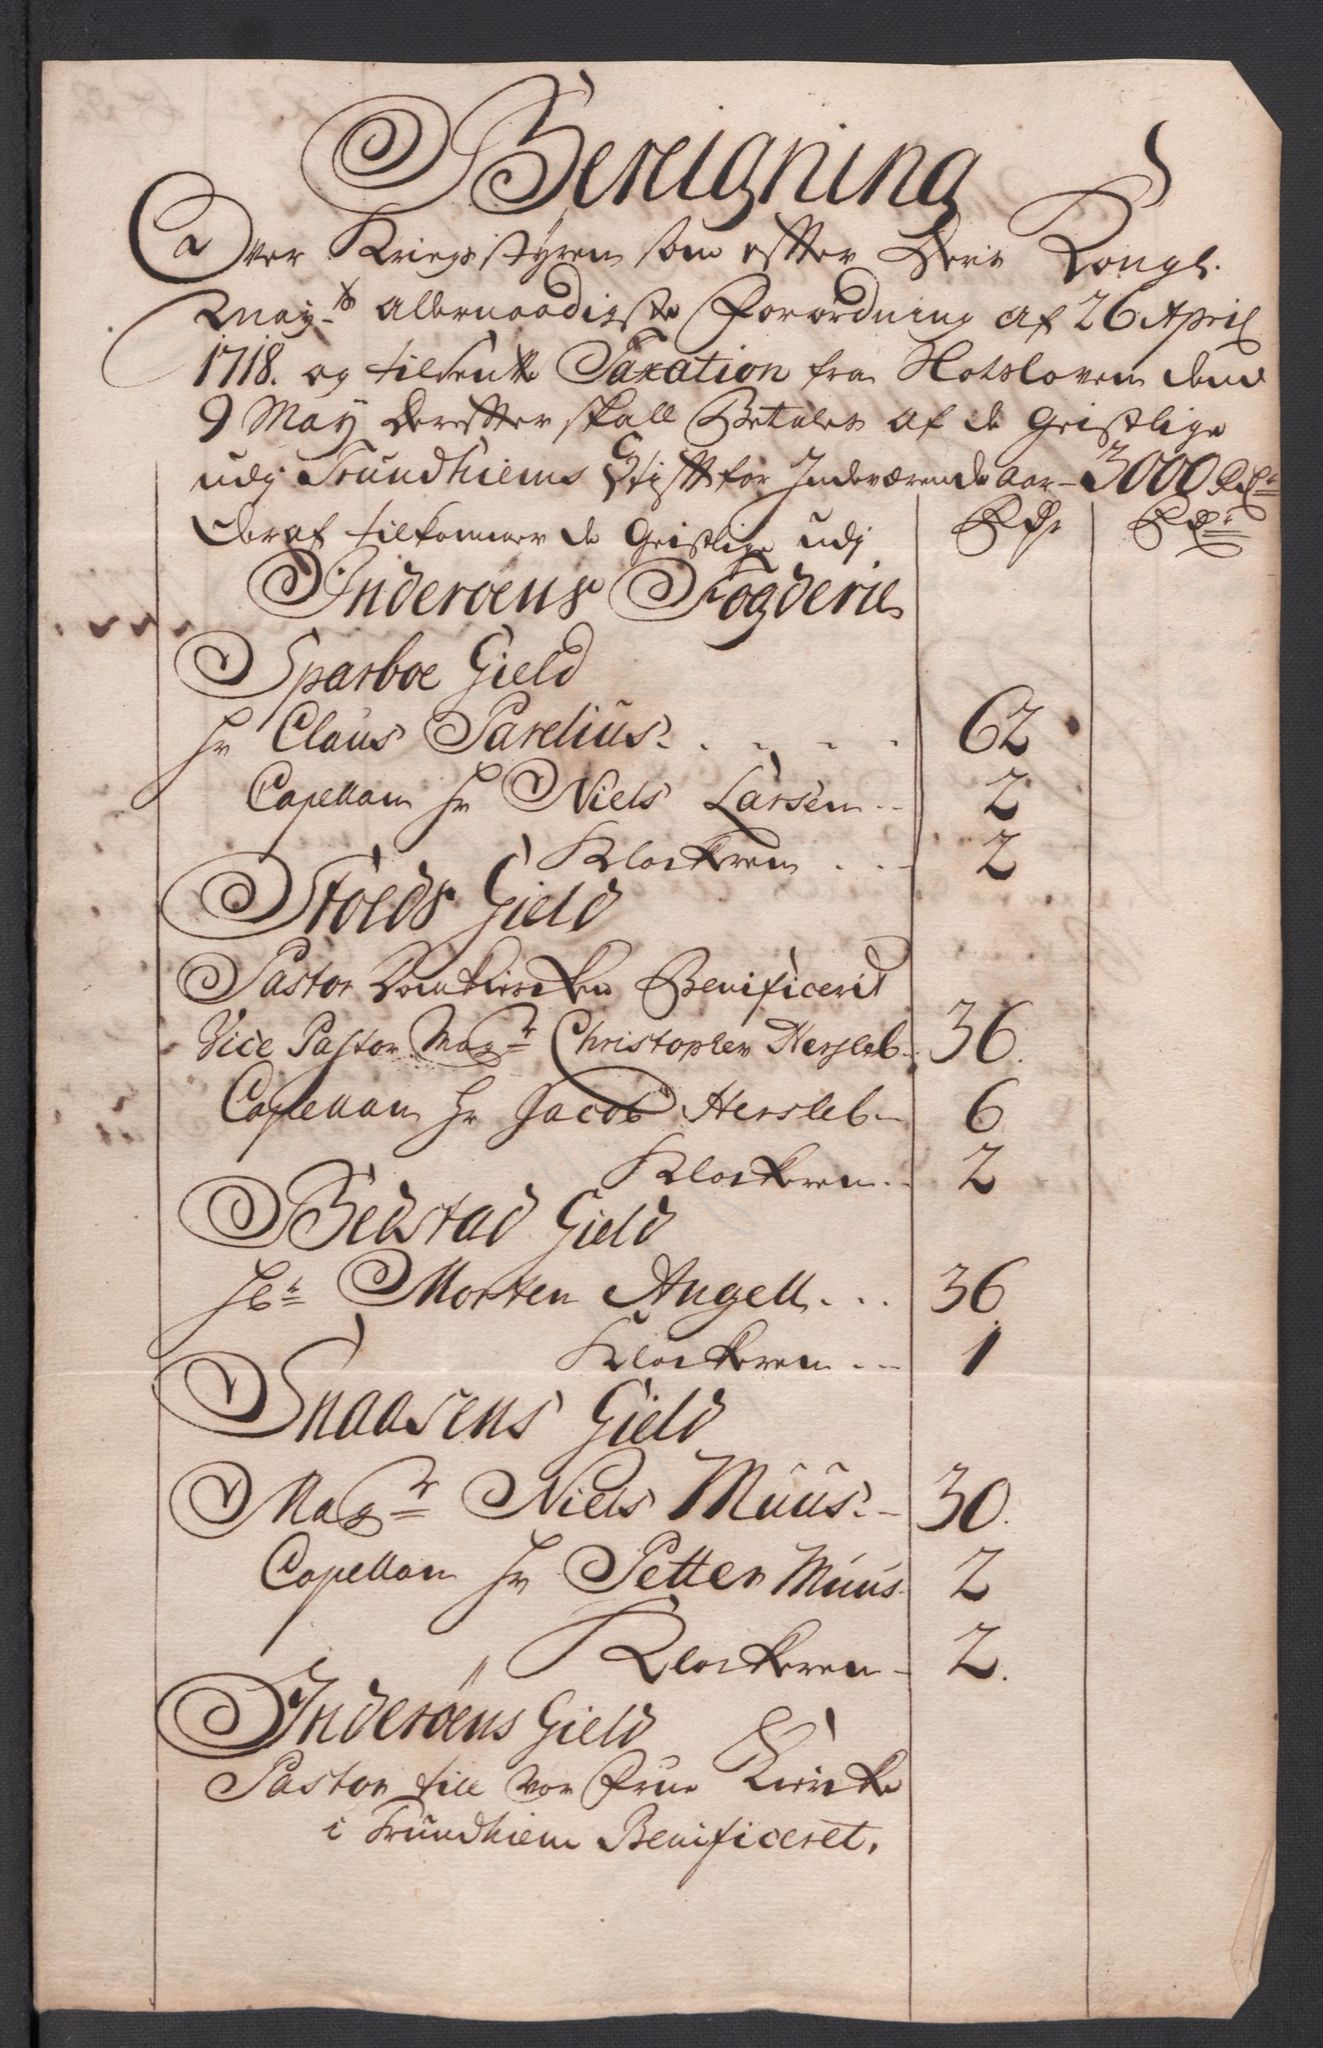 Bereigning
Over Kriegs styren som efter Deris Kongl:
May.ts allernaadigste Forordning af 26 April
1718. og tilsente Taxation fra Slotsloven dend
9 May derefter skall Betales af de Geistlige
udj Trundhiems Stift for Indeværende aar - 3000 Rdr
Deraf tilkommer de Geistlige udj Rdr Rdr
Inderøens Fogderie
Sparboe Gield
Hr Claus Parelius. 62
Capellan Hr Niels Larsen 2
Klockeren 2
Stods Gield
Pastor Domkiercken Benificerit
Vice Pastor Mag.r Christopher Hersleb 36.
Capellan Hr Jacob Hersleb 6
Klockeren 2
Bedstad Gield
Hr Morten Angell 36
Klockeren 1
Snaasens Gield
Mag.r Niels Muus. 30.
Capellan Hr Petter Muus 2
Klockeren 2.
Inderøens Gield
Pastor till vor Frue Kircke
i Trundhiem Benificeret.